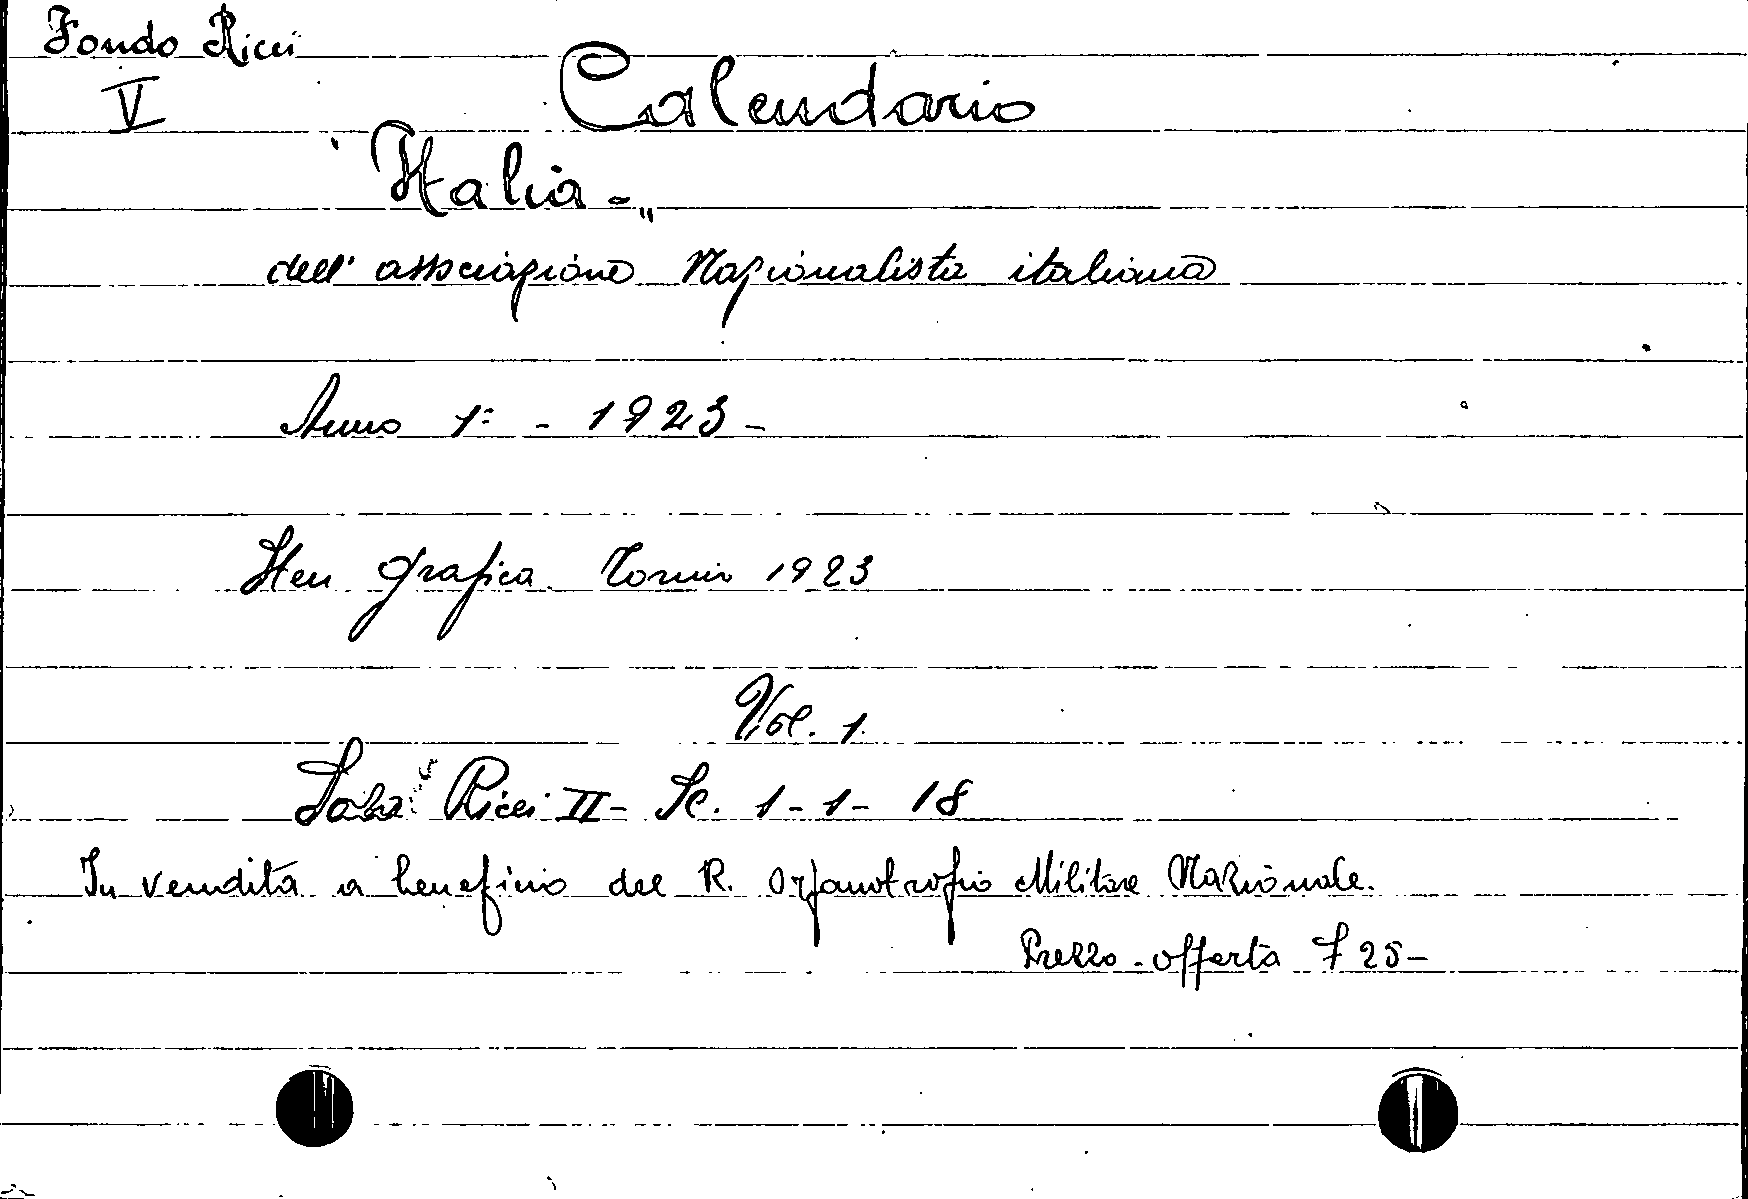 Fondo Ricci
V
Calendario
"Italia-"
dell'associazione Nazionalista italiana
Anno 1º - 1923-
grafica Torino 1923
Vol. 1.
Sala Ricci II- Sc. 1-1-18
In vendita a beneficio del R. Orfanotrofio Militare Nazionale.
Prezzo-offerta £ 25-